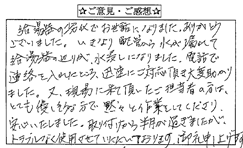 ☆ご意見・ご感想☆
給湯器の活水でお世話になりました。ありがとう
ございました。いきなり配管から水が漏れて
給湯器を辺りが、水差しになりました。電話で
連絡を入れたところ、迅速にご対応頂き大変助かり
ました。又、現場に来て頂いたご担当者の方は、
とても優しそうな方で黙々と作業してくださり、
安心いたしました。取り付けから半月が過ぎましたが、
トラブルなく使用させていただいております。御礼申し上げます